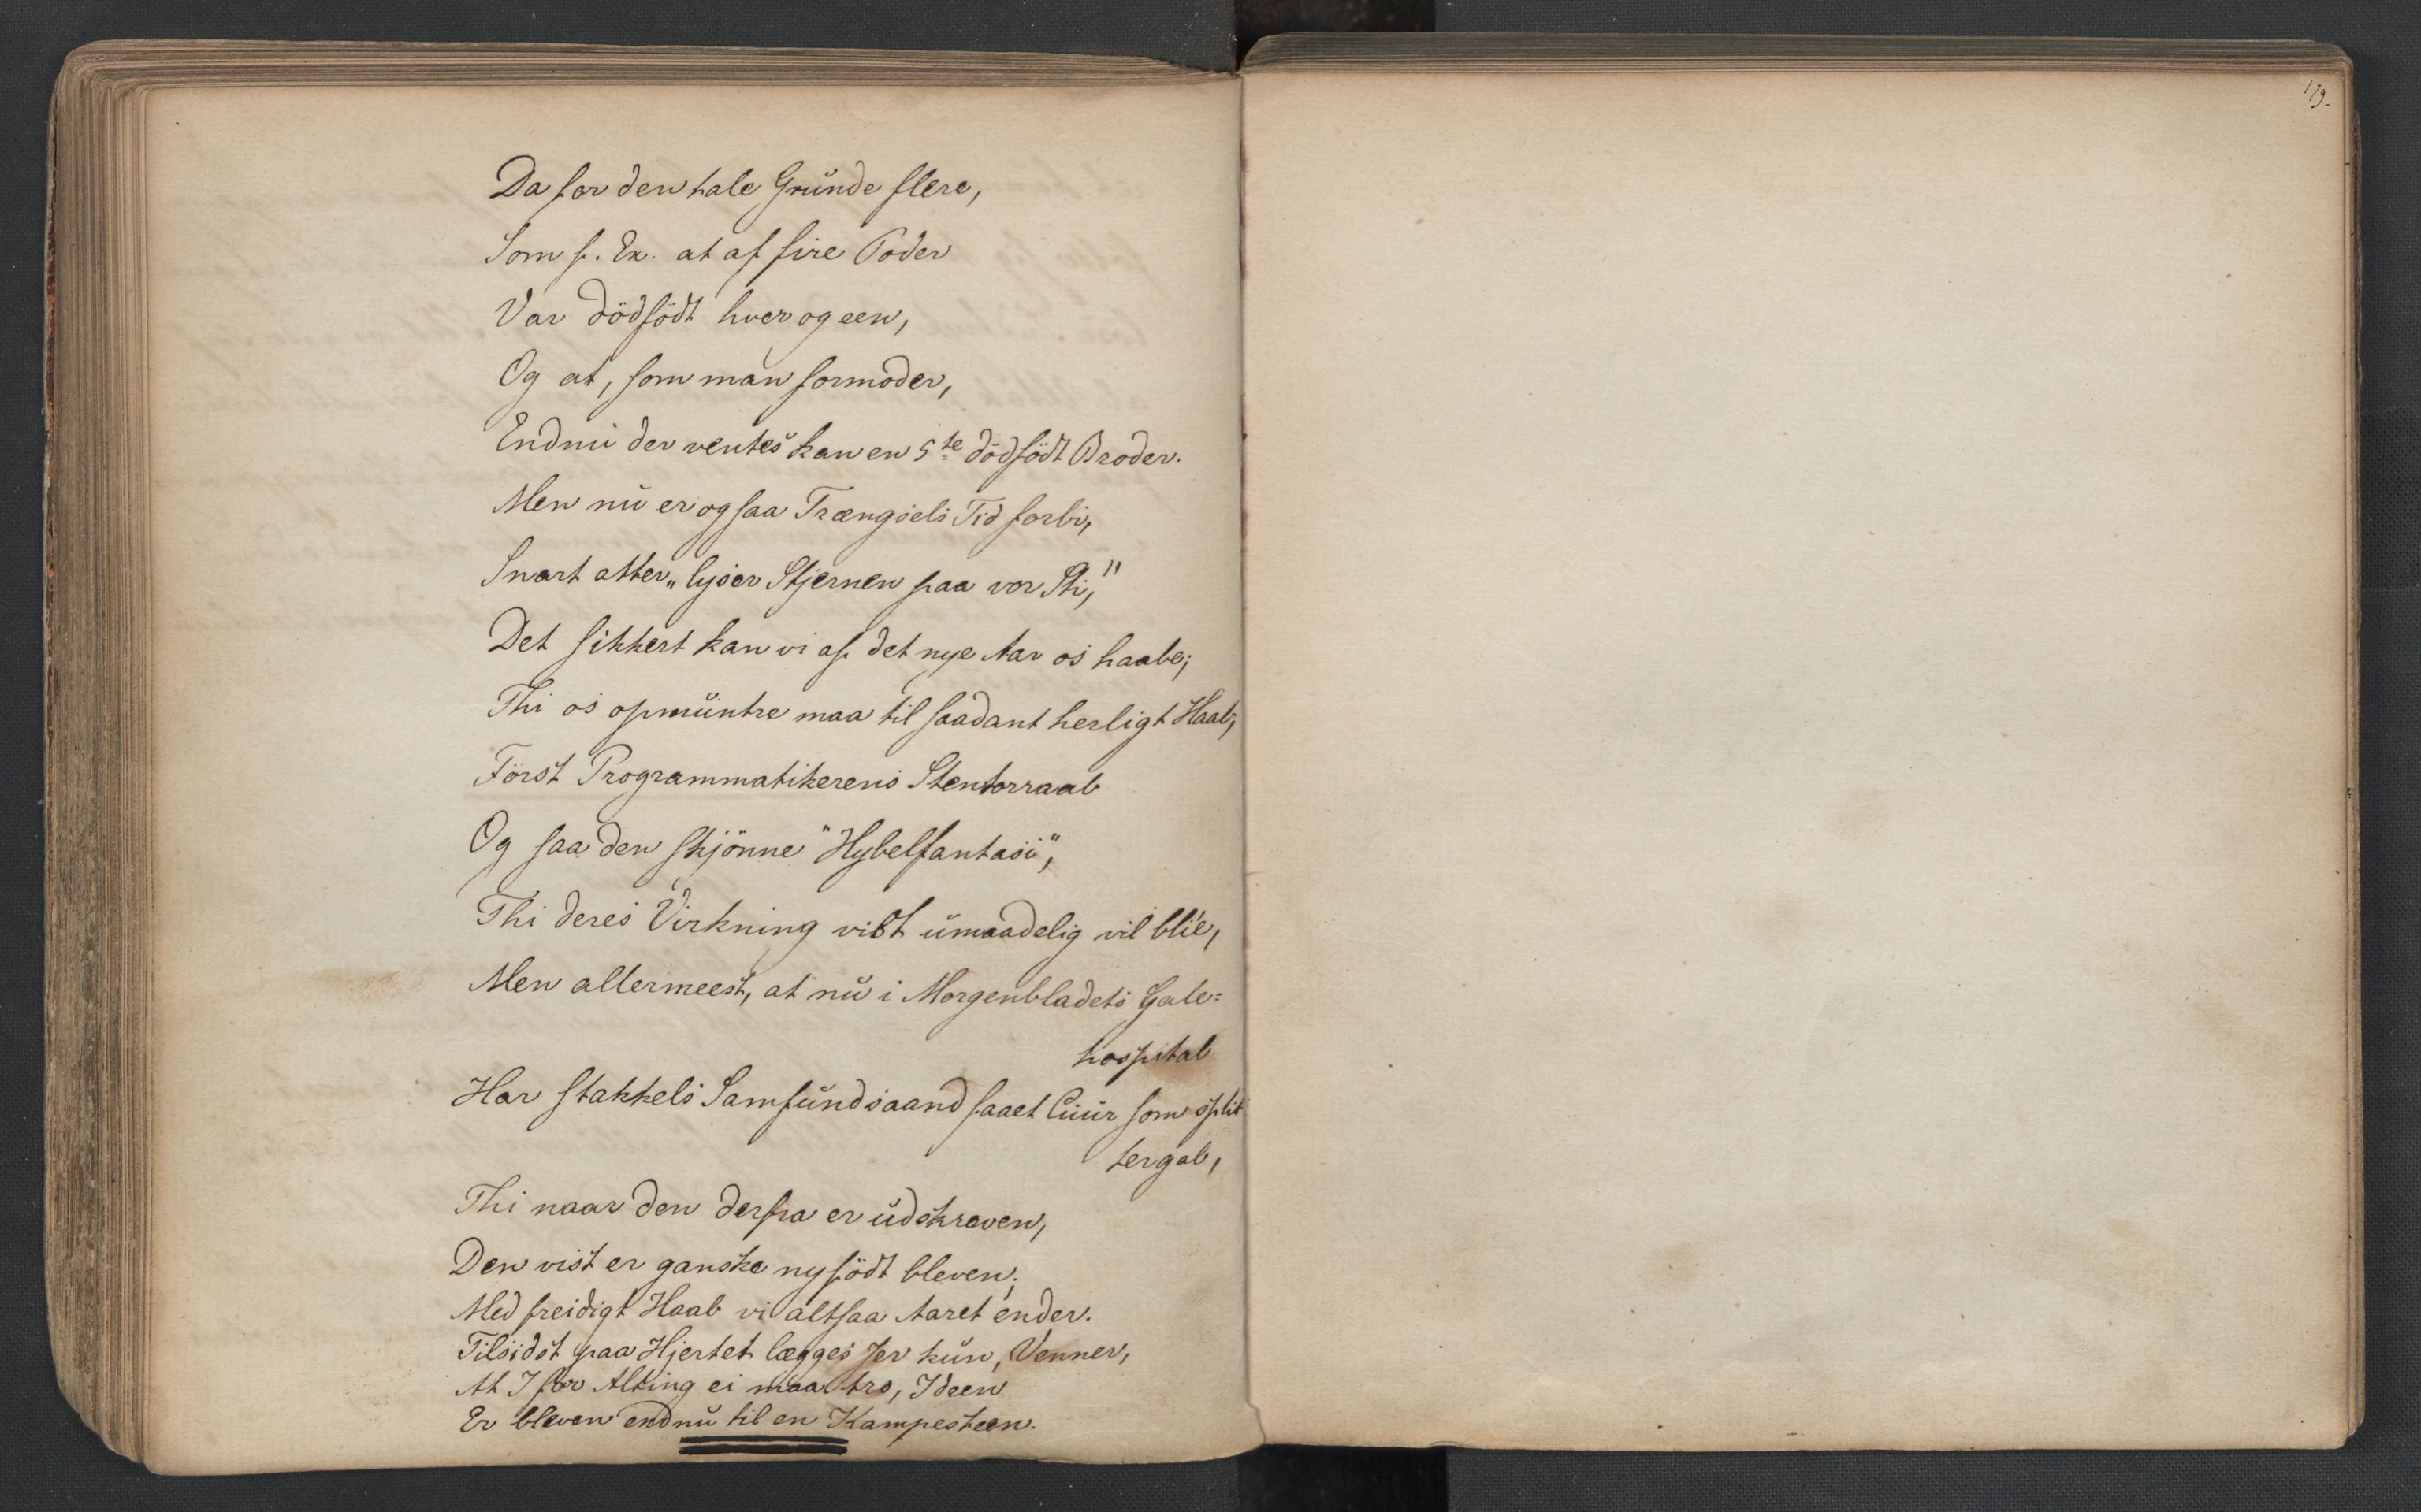 Da for den tale Grunde flere,
Som f. Ex. at af fire Poder
Var dödfödt hver og een,
Og at, som man formoder,
Endnu der ventes kan en 5te dödfödt Broder.
Men nu er ogsaa Trængsels Tid forbi,
Snart atter „lyser Stjernen paa vor Sti,"
Det sikkert kan vi af det nye Aar os haabe;
Thi os opmuntre maa til saadant herligt Haab,
Först Programmatikerens Stentorraab
Og saa den skjönne "Hybelfantasi",
Thi deres Virkning vist umaadelig vil blie,
Men allermeest, at nu i Morgenbladets Gale=
hospital
Har stakkels Samfundsaand faaet Cuur som split
tergal,
Thi naar den derfra er udskreven,
Den vist er ganske nyfödt bleven;
Med freidigt Haab vi altsaa Aaret ender.
Tilsidst paa Hjertet lægges Jer kun, Venner,
At I for Alting ei maa tro, Ideen
Er bleven endnu til en Kampesteen.
179.